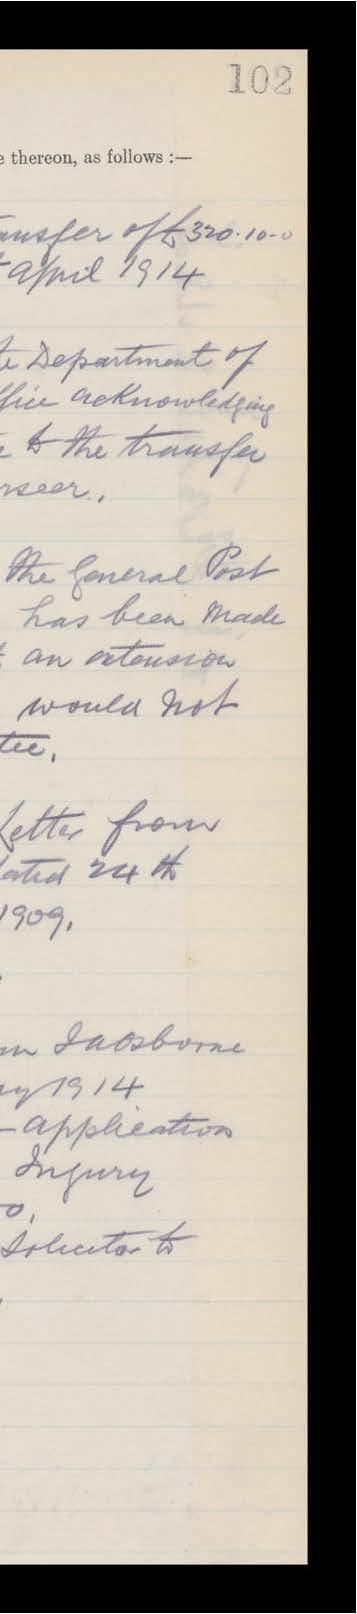 102
e thereon, as follows :—
ansfer of £320.10-0
April 1914
te Department of
ffice acknowledging
e to the transfer
rseer.
the General Post
has been made
t an extension
would not
tee.
Letter from
dated 24th
1909.
m Osborne
ay 1914
- application
Injury
o.
Solicitor to